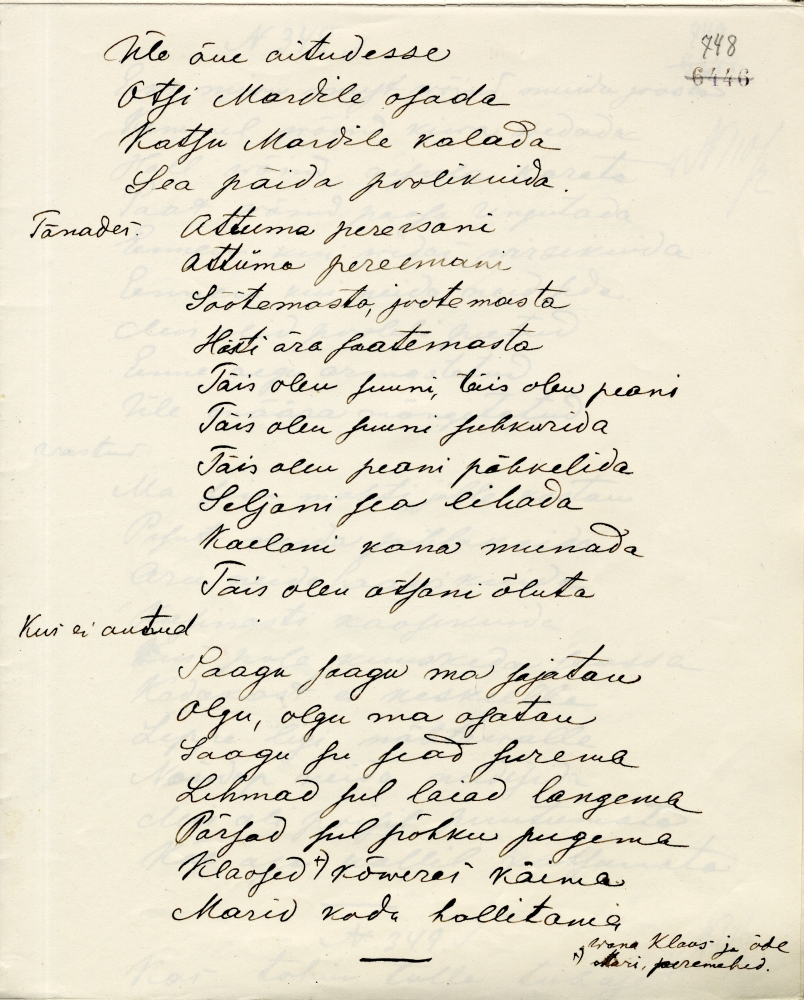 748
6446
Üle õue aitudesse
Otsi Mardile osada
Katsu Mardile kalada
Sea päida poolikuida.
Tänades. Attuma pereisani
Attüma pereemani
Söötemasta, jootemasta
Hästi ära saatemasta
Täis olen suuni, täis olen peani
Täis olen suuni suhkurida
Täis olen peani pähkelida
Seljani sea lihada
Kaelani kana munada
Täis olen otsani õluta
Kui ei antud
Saagu saagu ma sajatan
Olgu, olgu ma osatan
Saagu su sead surema
Lehmad sul laiad langema
Pärsad sul põhku pugema
Klaosed +) kõweras käima
Marid kodu hallitama
+) wana Klaos ja õde
Mari, peremehed.